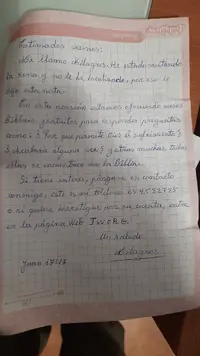 Estimados vecinos:
Me llamo Milagros. He estado visitando
la zona y no le he localizado, por eso le
dejo esta nota.
En esta ocasión estamos ofreciendo cursos
Bíblicos, gratuitos para responder preguntas
como: ¿Por qué permite Dios el sufrimiento?
¿Acabará alguna vez? y otras muchas, todas
ellas se encuentran en la Biblia.
Si tiene interés, póngase en contacto
conmigo, este es mi teléfono
o si quiere investigar por su cuenta, entre
en la página Web JW.ORG.
Un saludo
Milagros